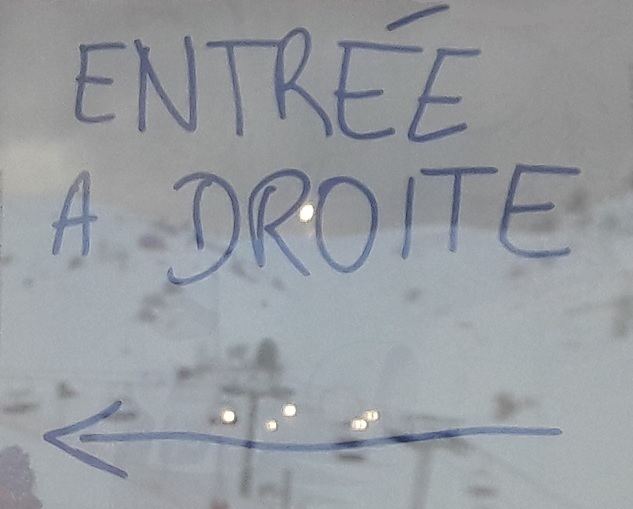 ENTRÉE
A DROITE